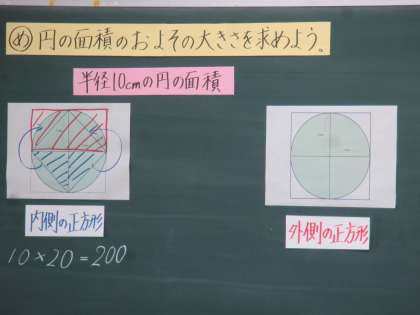 め 円の面積のおよその大きさを求めよう。
半径10cmの円の面積
内側の正方形
10×20=200
外側の正方形